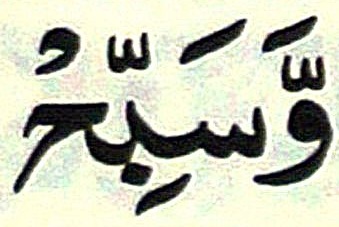 وَّسَبِّحْ